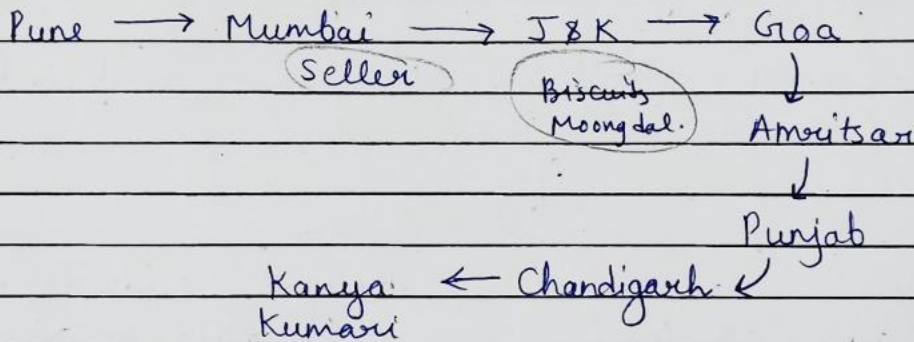 Pune → Mumbai → J&K → Goa
Seller
Biscuits
Moong dal.
↓
Amritsar
↓
Punjab
↙
Kanya ← Chandigarh
Kumari